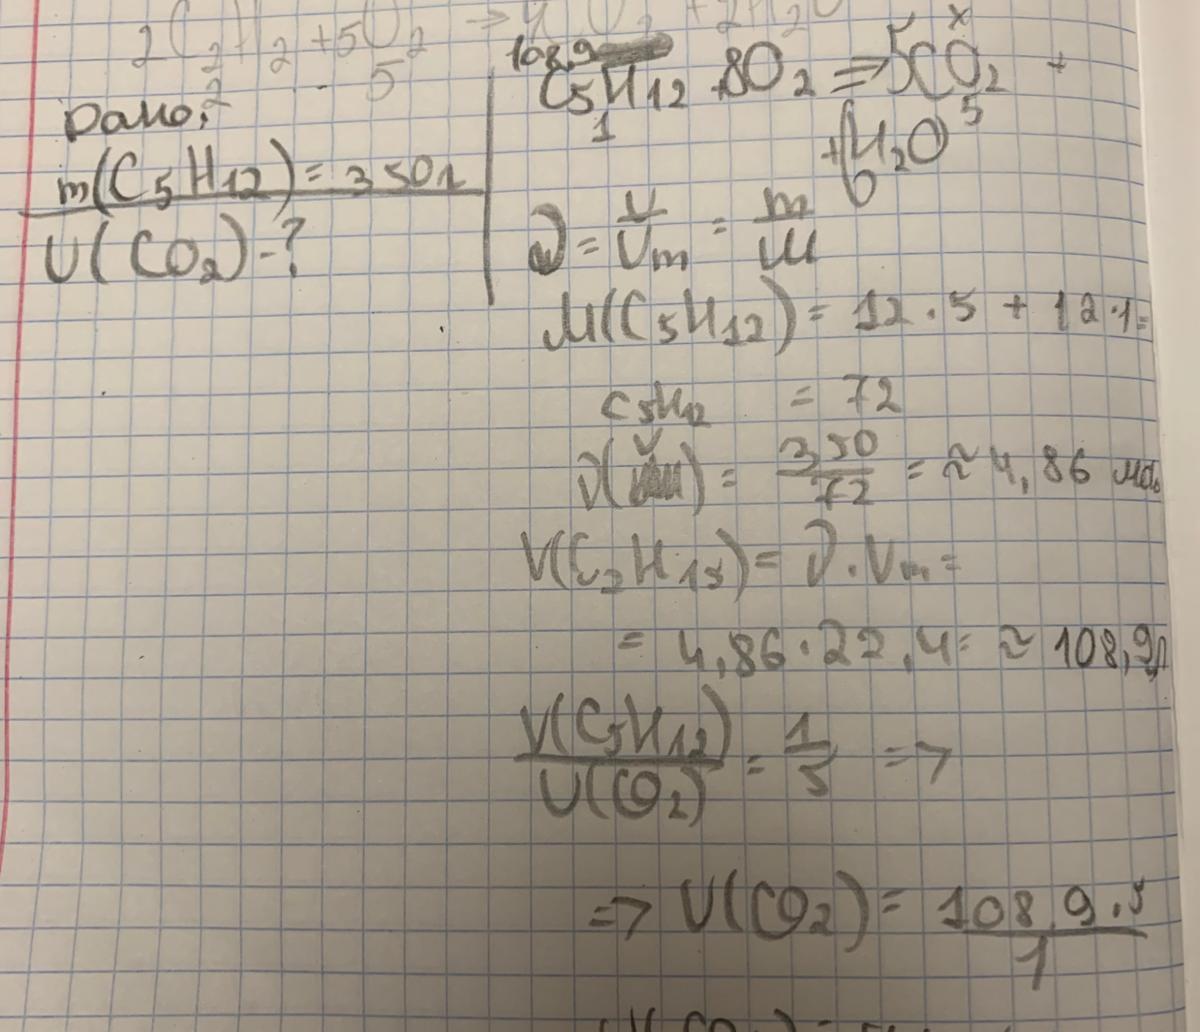 2C₂H₂ + 5O₂ → 4CO₂ + 2H₂O
2 5
Дано:
m(C₅H₁₂) = 350г
V(CO₂) - ?
108,9 x
C₅H₁₂ + 8O₂ => 5CO₂ +
1 5
+ 6H₂O
ν = V/Vm = m/M
M(C₅H₁₂) = 12·5 + 12·1 =
= 72
C₅H₁₂
ν( ) = 350/72 = ≈ 4,86 моль
V(C₅H₁₂) = ν·Vm =
= 4,86·22,4 = ≈ 108,9л
V(C₅H₁₂)/V(CO₂) = 1/5 =>
=> V(CO₂) = 108,9·5/1